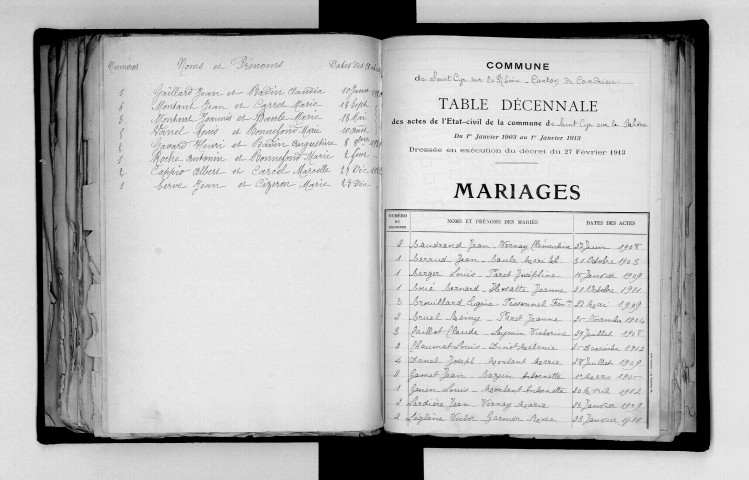 Numéros Noms et Prénoms Dates des Actes
1 Gaillard Jean et Badin Claudia 10 Janv
6 Montant Jean et Carret Marie 16 Sept
3 Montant Joannès et Baule Marie 18 Mai
8 Vanel et Bonnefond Marie 10 août
2 Gavard Henri et Badin Augustine 8 9bre
1 Roche Antonin et Bonnefond Marie 2 févr
2 Cappio Albert et Carcel Marcelle 27 Déc
1 Serve Jean et Cézeron Marie 29 Déc
COMMUNE
de Saint Cyr sur le Rhône - Canton de Condrieu
TABLE DÉCENNALE
des actes de l'État-civil de la commune de Saint Cyr sur le Rhône
Du 1er Janvier 1903 au 1er Janvier 1913
Dressée en exécution du décret du 27 Février 1913
MARIAGES
NUMÉRO DU REGISTRE NOMS ET PRÉNOMS DES MARIÉS DATES DES ACTES
2 Baudrand Jean - Vernay Clémentine 27 Juin 1908
1 Beraud Jean - Baule Marie 31 Octobre 1903
1 Berger Louis - Paret Joséphine 15 Janvier 1909
1 Bernard - Jeanne 21 Octobre 1911
3 Brouillard Eugène - 22 Mai 1909
2 Bruel Rémy - Paret Jeanne 25 Novembre 1904
3 Caillot Claude - Victorine 29 Juillet 1908
2 Chaumat Louis - Mélanie 21 Décembre 1912
4 Danel Joseph - Montant Marie 28 Juillet 1909
2 Gamet Jean - Antoinette 1er Mars
1 Louis - Montant Antoinette 20 Avril 1912
2 Lardière Jean - Vernay Marie 23 Janvier 1909
2 Victor Garnier 23 Janvier 1911